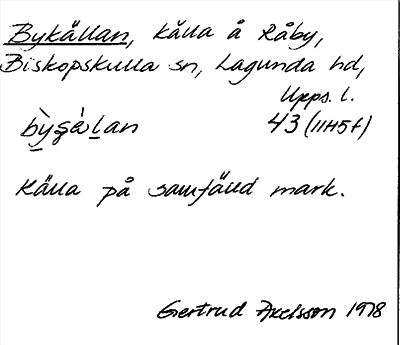 Bykällan, källa å Råby,
Biskopskulla sn, Lagunda hd,
Upps. l.
bỳʂä̀lan 43 (11H5f)
Källa på samfälld mark.
Gertrud Axelsson 1978